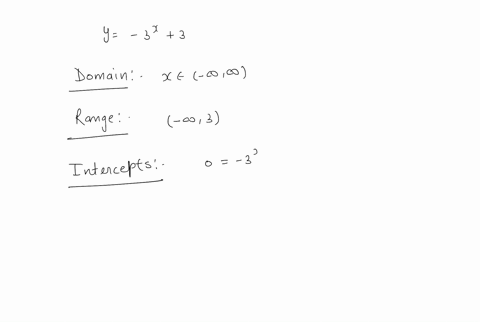 y = - 3^x + 3
Domain:- x ∈ (-∞,∞)
Range:- (-∞, 3)
Intercepts:- 0 = -3^